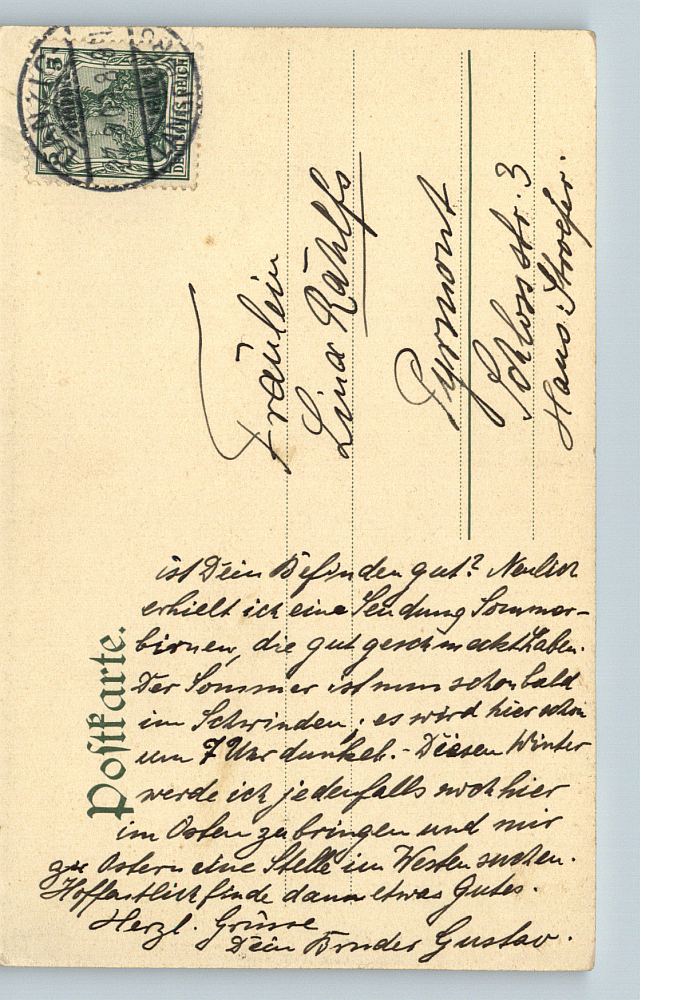 5
DANZIG
DEUTSCHES REICH
Postkarte.
Fräulein
Lina Rählfs
Pyrmont
Schlossstr. 3
Hans Stroefer.
ist Dein Befinden gut? Neulich
erhielt ich eine Sendung Sommer-
birnen, die gut geschmeckt haben.
Der Sommer ist nun schon bald
im Schwinden; es wird hier schon
um 7 Uhr dunkel. - Diesen Winter
werde ich jedenfalls noch hier
im Osten zubringen und mir
zu Ostern eine Stelle im Westen suchen.
Hoffentlich finde dann etwas Gutes.
Herzl. Grüsse
Dein Bruder Gustav.